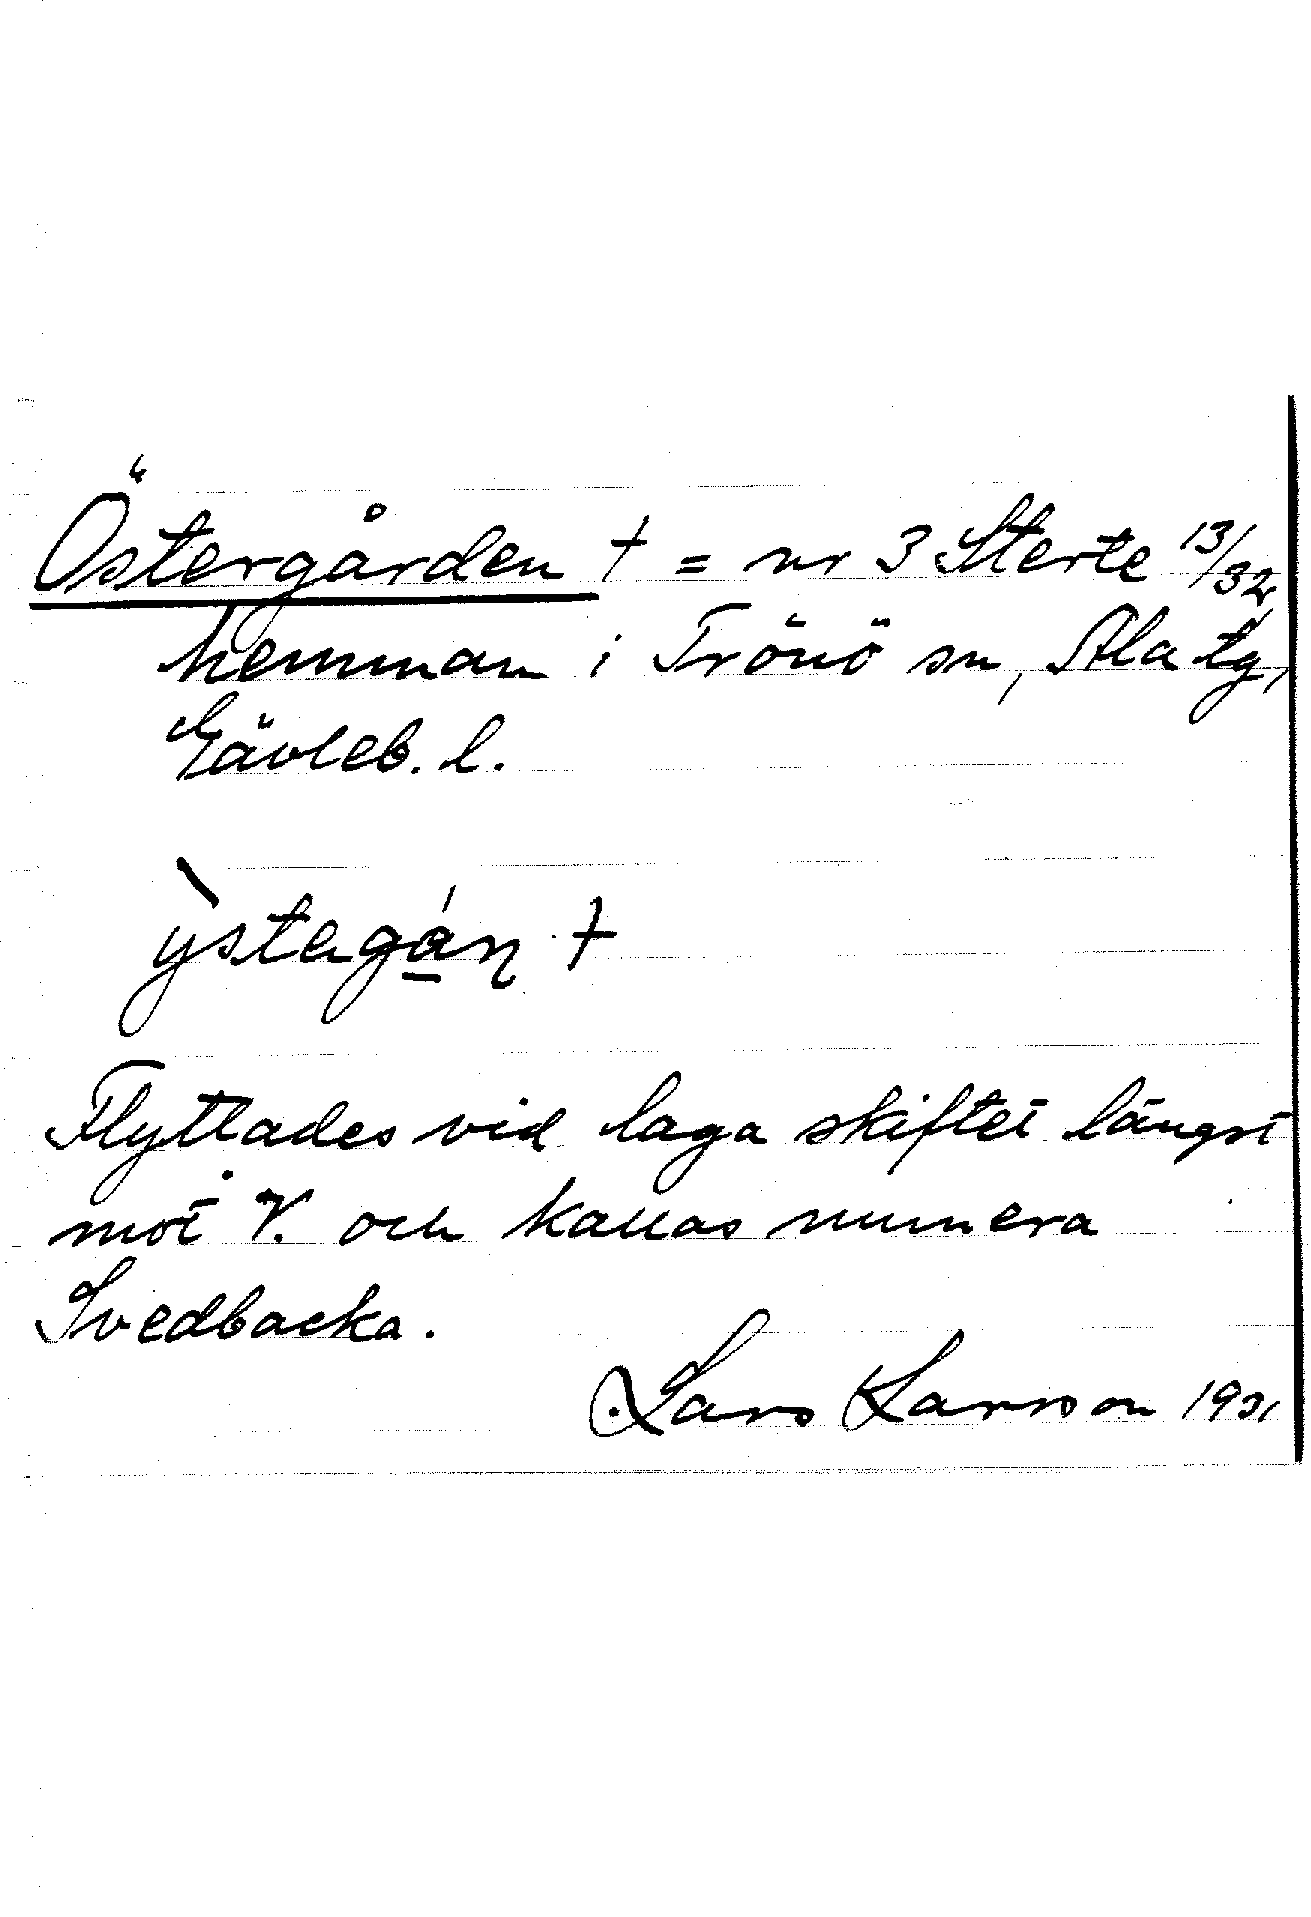 Östergården † = nr 3 Sterte 13/32
hemman i Trönö sn, Ala tg,
Gävleb. l.
ỳstagán †
Flyttades vid laga skiftet längst
mot V. och kallas numera
Svedbacka.
Lars Larsson 1931